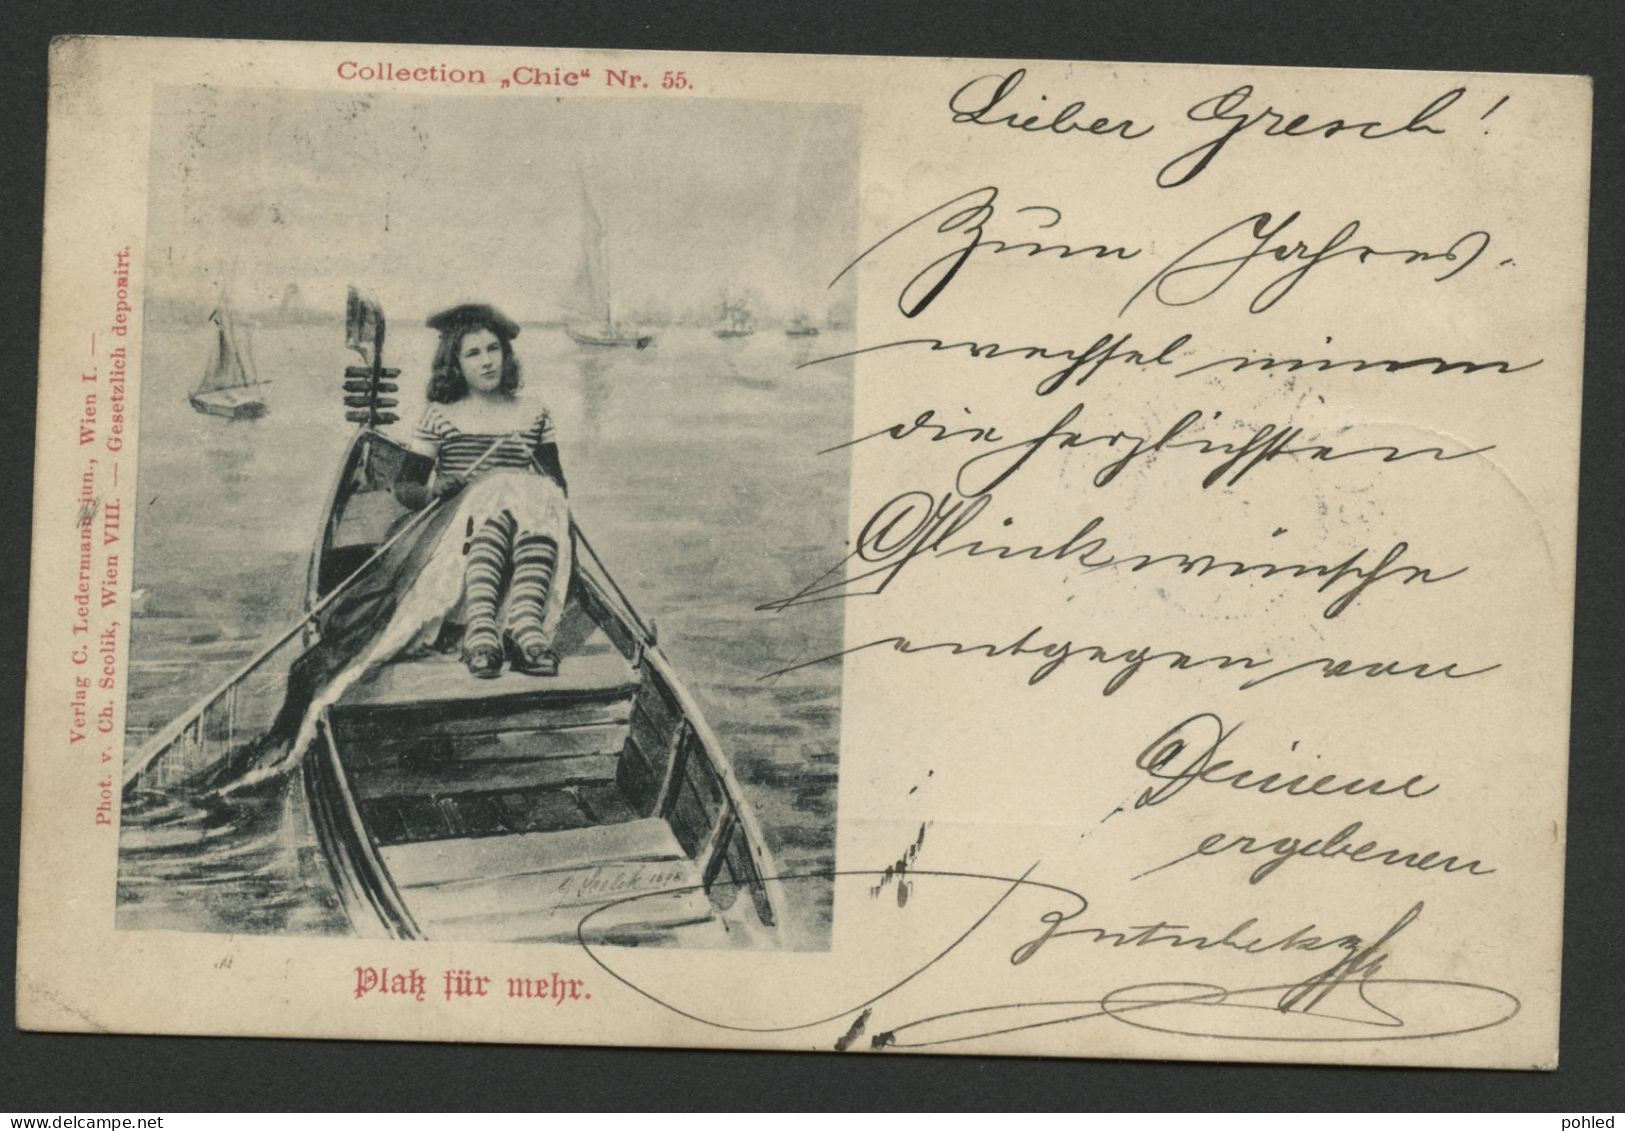 Collection „Chic“ Nr. 55.
Verlag C. Ledermann jun., Wien I. —
Phot. v. Ch. Scolik, Wien VIII. — Gesetzlich deponirt.
Scolik 1898
Platz für mehr.
Lieber Gresch!
Zum Jahres-
wechsel nimm
die herzlichsten
Glückwünsche
entgegen von
Deinem
ergebenen
pohled